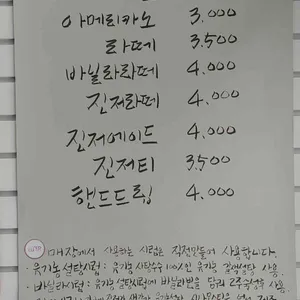 아메리카노 3.000
라떼 3.500
바닐라라떼 4.000
진저라떼 4.000
진저에이드 4.000
진저티 3.500
핸드드립 4.000
매장에서 사용하는 시럽은 직접만들어 사용합니다.
· 유기농설탕시럽 : 유기농 사탕수수 100% 유기농 갈색설탕 사용.
· 바닐라시럽 : 유기농 설탕시럽에 바닐라빈을